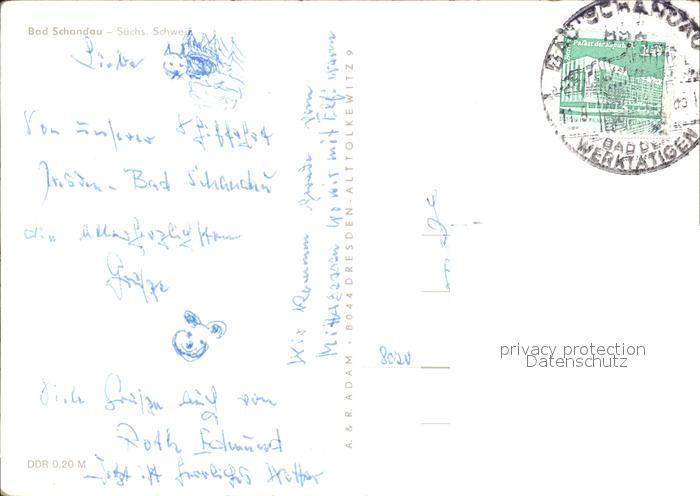 Bad Schandau – Sächs. Schweiz
Liebe
Von unserer Schiffahrt
Dresden - Bad Schandau
die allerherzlichsten
Grüße
Wir kommen gerade vom
Mittagessen wo wir mit
A. & R. ADAM · 8044 DRESDEN-ALTTOLKEWITZ 9
Grüße auch von
Roth Edmund
Jetzt ist herrliches Wetter
DDR 0,20 M
8020
Palast der Republik
BAD SCHANDAU
BAD DER
WERKTÄTIGEN
privacy protection
Datenschutz